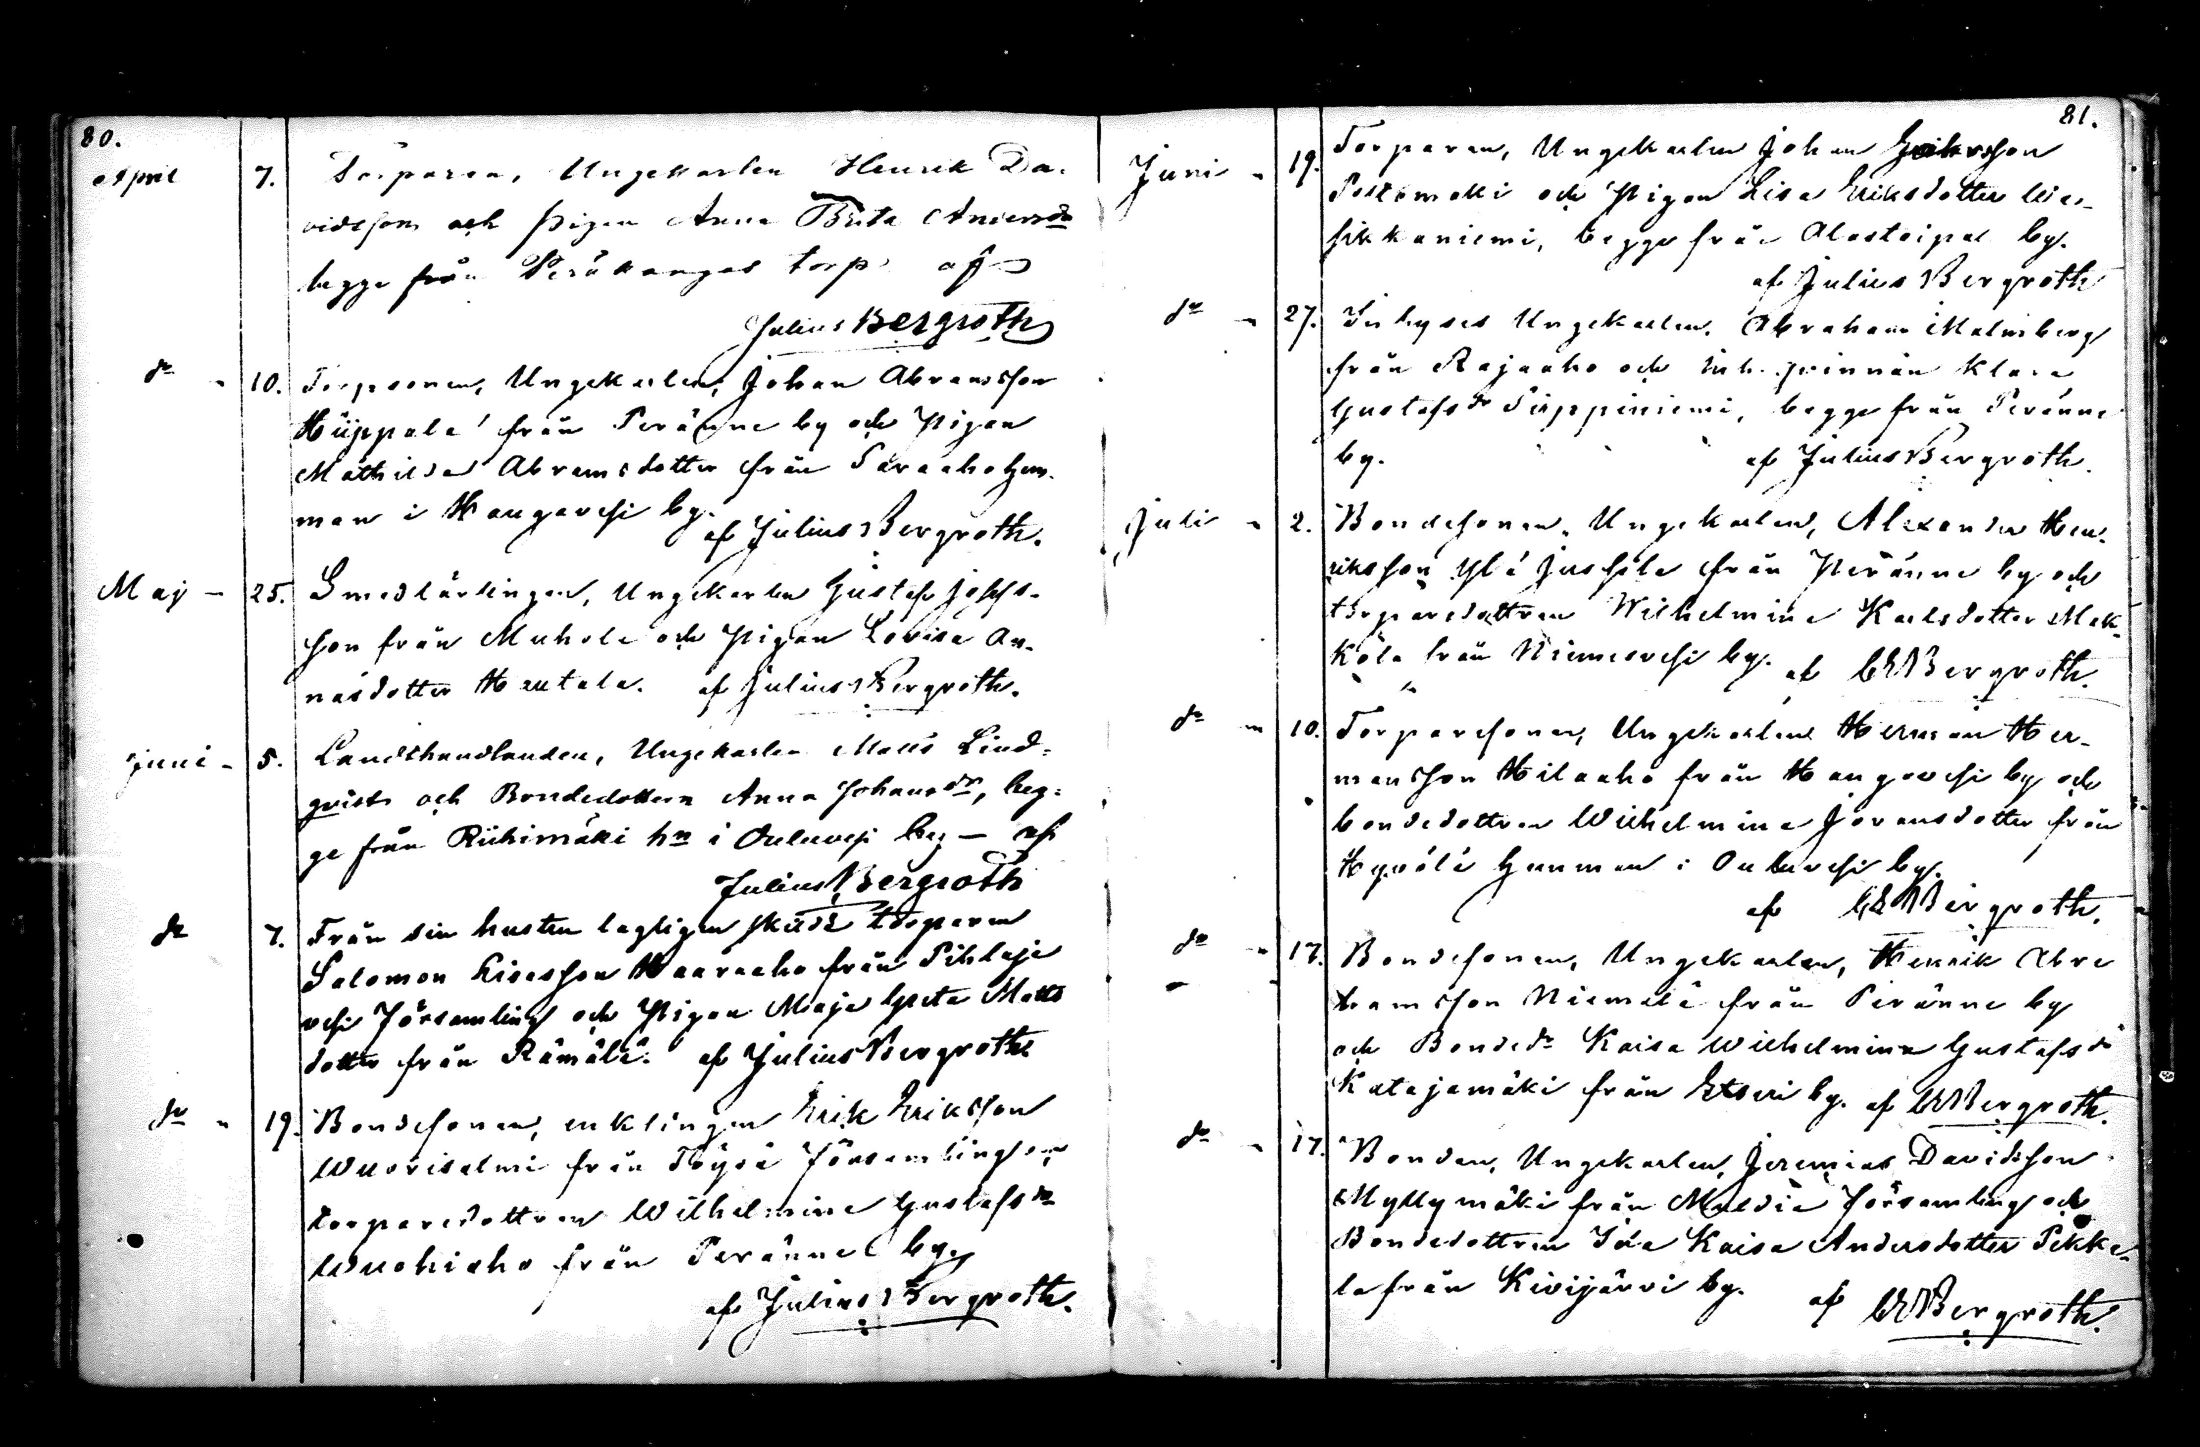 80.
April 7. Torparen, Ungekarlen Henrik Da-
vidsson och pigan Anna Brita Andersdr
begge från Peräkangas torp af
Julius Bergroth
do " 10. Torpsonen, Ungekarlen, Johan Abramsson
Hüppälä från Peränne by och Pigan
Mathilda Abramsdotter från Saraaho hem-
man i Haugavesi by.
af Julius Bergroth.
Maj - 25. Smedlärlingen, Ungekarlen Gustaf Josefs-
son från Muhola och Pigan Lovisa An-
näsdotter Hautala. af Julius Bergroth.
Juni - 5. Landthandlanden, Ungekarlen Matts Lind-
qvist och Bondedottern Anna Johansdr, beg-
ge från Riihimäki hn i Ouluvesi by — af
Julius Bergroth
do 7. Från sin hustru lagligen skilde torparen
Salomon Lisasson Haaraaho från Pihlaja
vesi församling och Pigan Maja Greta Matts
dotter från Rämälä. af Julius Bergroth
do " 19. Bondesonen, enklingen Erik Eriksson
Wuorisalmi från Töysä församling och
torparedottren Wilhelmina Gustafsdr
Wuohiaho från Peränne by
af Julius Bergroth.
81.
Juni " 19. Torparen, Ungekarlen Johan Eriksson
Peltomäki och Pigan Lisa Eriksdotter
sikkaniemi, begge från Alastaipal by.
af Julius Bergroth
do " 27. Inhyses Ungekarlen, Abraham Malmberg
från Rajaaho och inh. qvinnan Klara
Gustafsdr Tüppiniemi, begge från Peränne
by. af Julius Bergroth.
Juli " 2. Bondesonen, Ungekarlen, Alexander Hen-
riksson Ylä Jussila från Peränne by och
torparedottren Wilhelmina Karlsdotter Mak-
kola från Niemisvesi by. af CEBergroth.
do " 10. Torparesonen, Ungekarlen Herman Her-
mansson Hilaaho från Haugavesi by och
bondedottren Wilhelmina Joransdotter från
Hypölä hemman i Ouluvesi by.
af CEBergroth.
do " 17. Bondesonen, Ungekarlen, Henrik Abra
hamsson Niemelä från Peränne by
och Bondedr Kaisa Wilhelmina Gustafsdr
Katajamäki från Etseri by. af CEBergroth.
do " 17. Bonden, Ungekarlen, Jeremias Davidsson
Myllymäki från Multia församling och
Bondedottren Ida Kaisa Andersdotter Pekka-
la från Kivijärvi by. af CEBergroth.